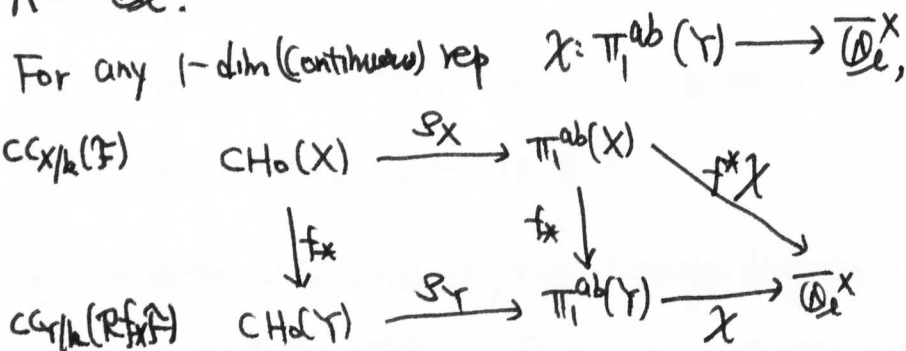 For any 1-dim (Continuous) rep χ: π₁^ab(Y) ⟶ Q̄_ℓ^×,
CC_{X/k}(F) CH₀(X) —ρ_X→ π₁^ab(X)
f^*χ
↓f_* f_*↓
CC_{Y/k}(Rf_*F) CH₀(Y) —ρ_Y→ π₁^ab(Y) —χ→ Q̄_ℓ^×